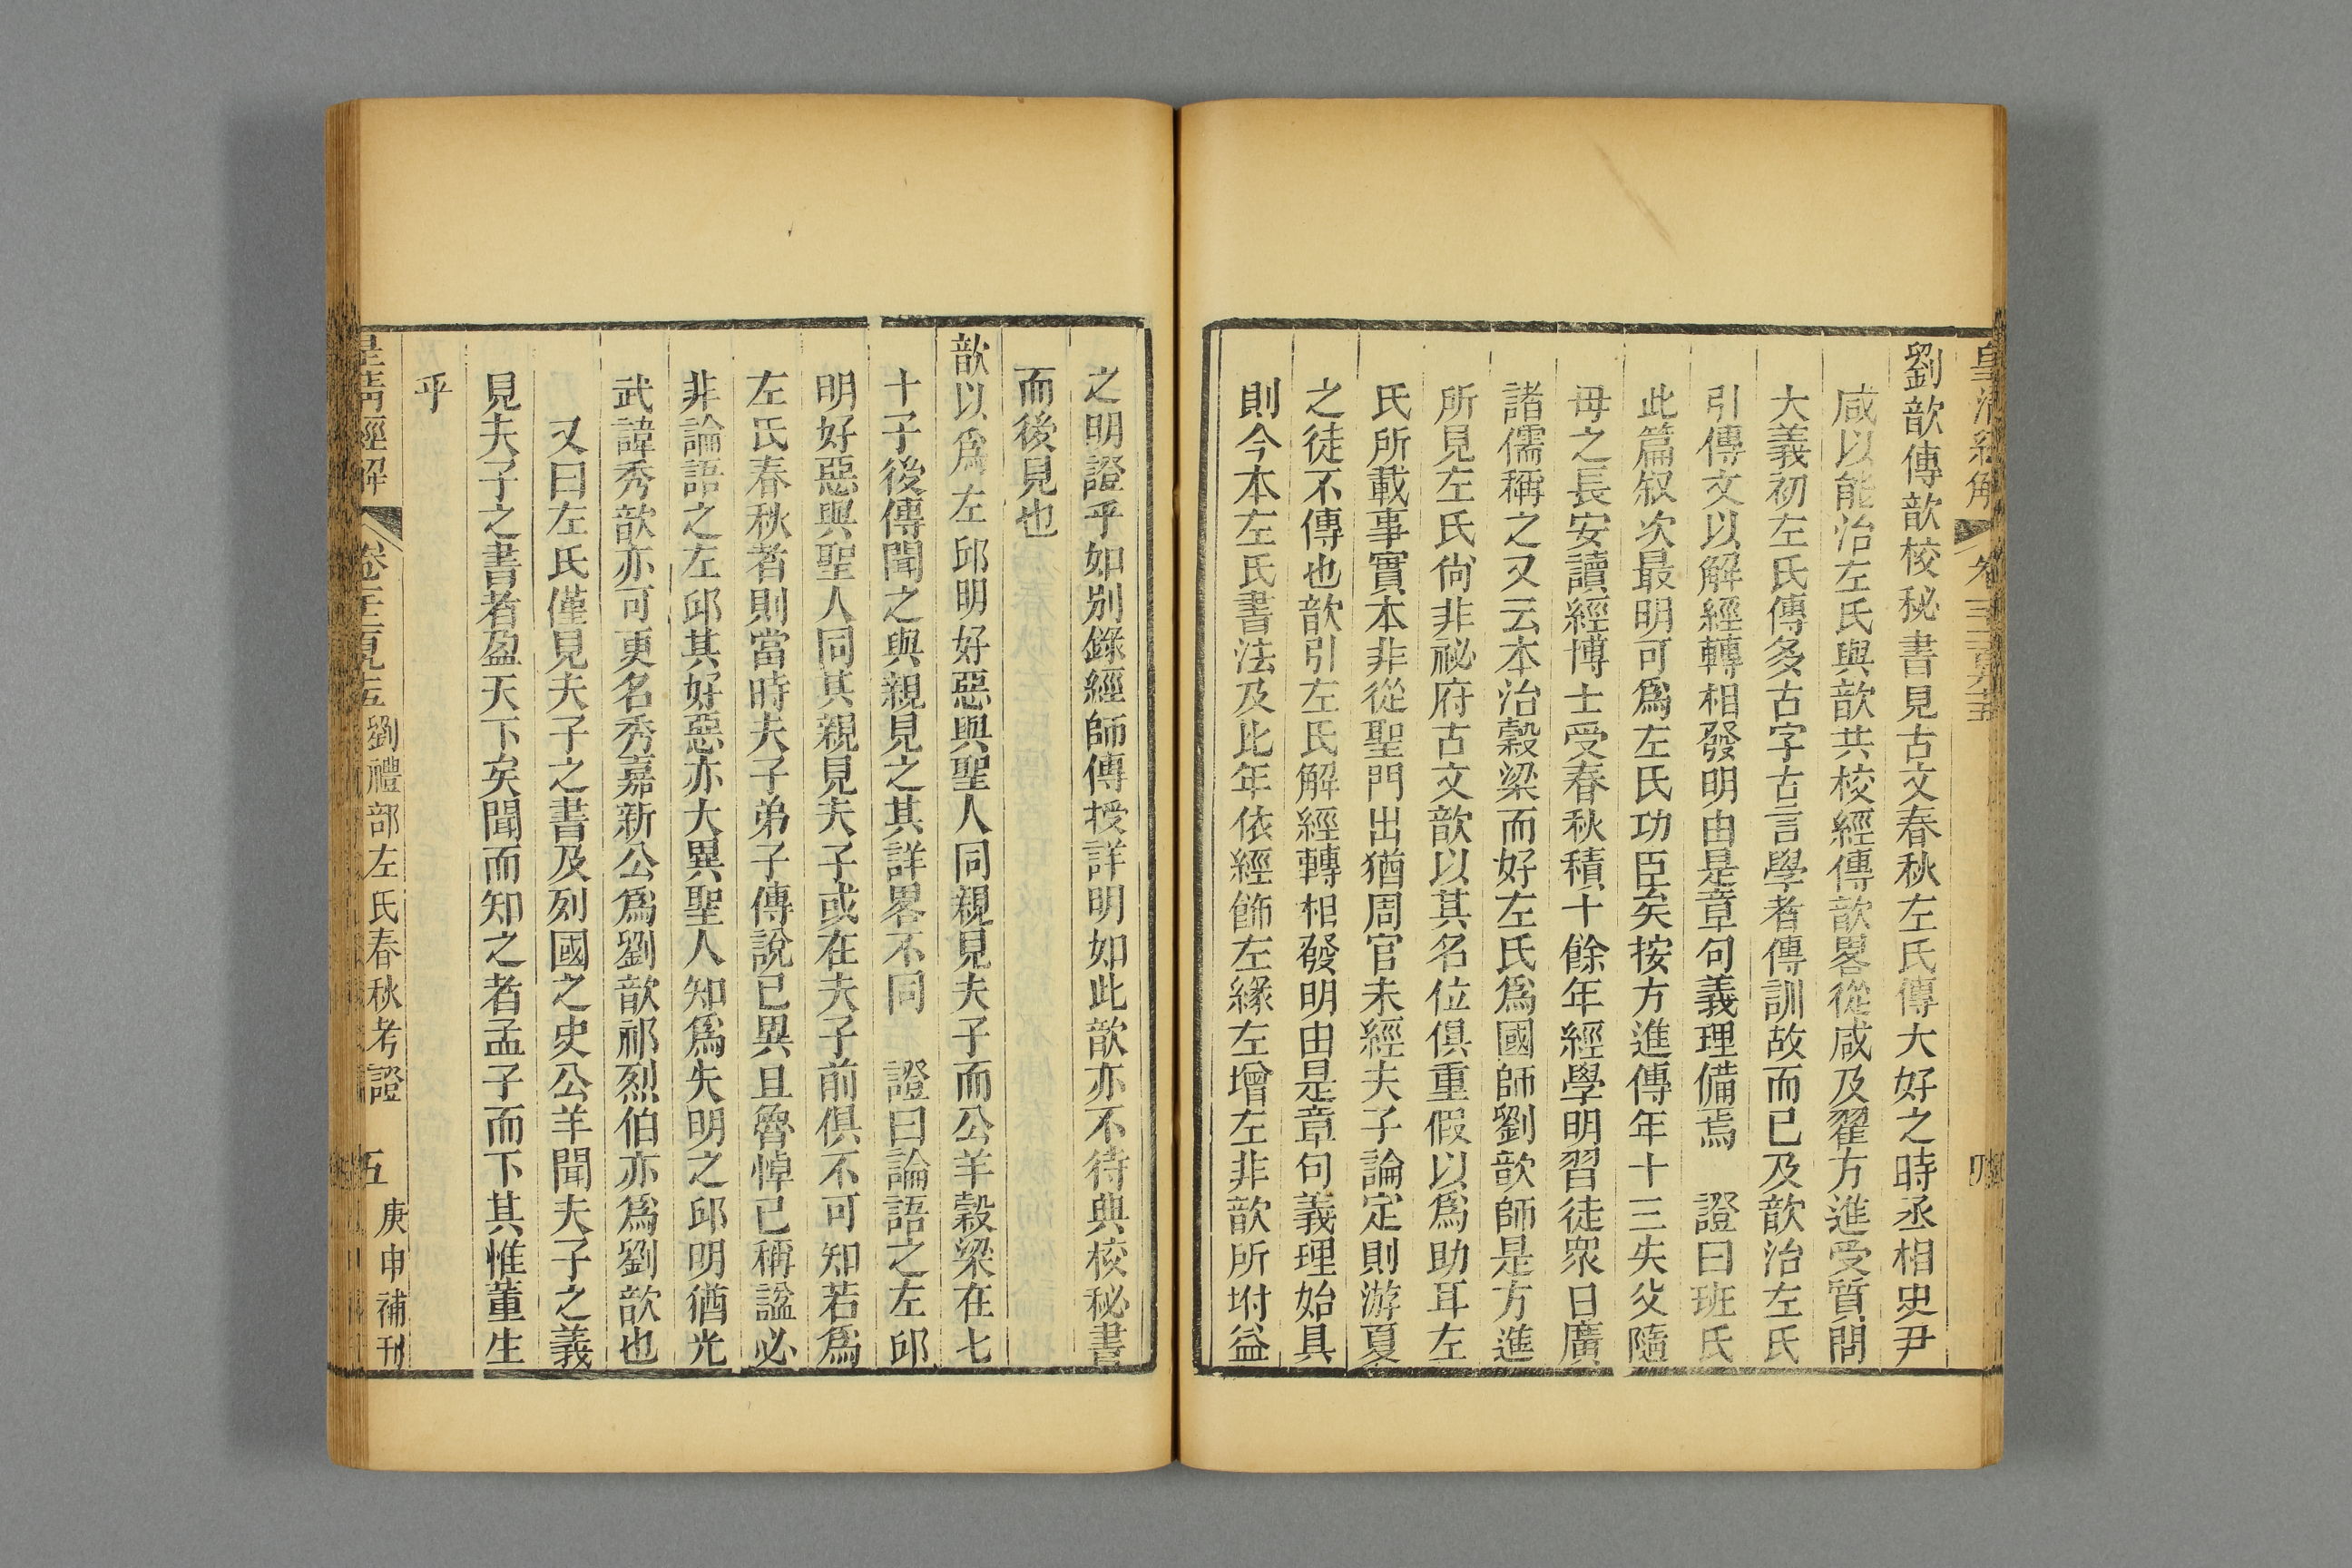 劉歆傳歆校秘書見古文春秋左氏傳大好之時丞相史尹
咸以能治左氏與歆共校經傳歆畧從咸及翟方進受質問
大義初左氏傳多古字古言學者傳訓故而已及歆治左氏
引傳文以解經轉相發明由是章句義理備焉　證曰班氏
此篇叙次最明可爲左氏功臣矣按方進傳年十三失父隨
母之長安讀經博士受春秋積十餘年經學明習徒衆日廣
諸儒稱之又云本治穀梁而好左氏爲國師劉歆師是方進
所見左氏尙非祕府古文歆以其名位俱重假以爲助耳左
氏所載事實本非從聖門出猶周官未經夫子論定則游夏
之徒不傳也歆引左氏解經轉相發明由是章句義理始具
則今本左氏書法及比年依經飾左緣左增左非歆所坿益
之明證乎如別錄經師傳授詳明如此歆亦不待典校秘書
而後見也
歆以爲左邱明好惡與聖人同親見夫子而公羊穀梁在七
十子後傳聞之與親見之其詳畧不同　證曰論語之左邱
明好惡與聖人同其親見夫子或在夫子前俱不可知若爲
左氏春秋者則當時夫子弟子傳說已異且魯悼已稱諡必
非論語之左邱其好惡亦大異聖人知爲失明之邱明猶光
武諱秀歆亦可更名秀嘉新公爲劉歆祁烈伯亦爲劉歆也
又曰左氏僅見夫子之書及列國之史公羊聞夫子之義
見夫子之書者盈天下矣聞而知之者孟子而下其惟董生
乎
皇清經解　卷　劉禮部左氏春秋考證　五　庚申補刊